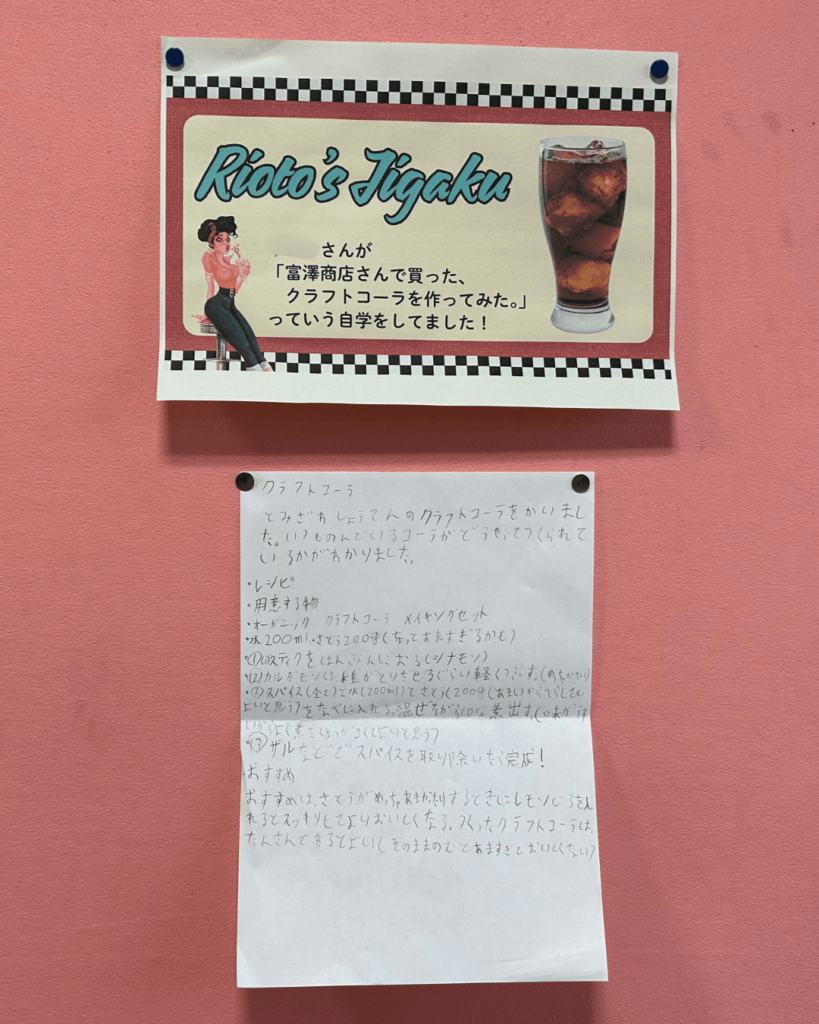 Rioto's Jigaku
さんが
「富澤商店さんで買った、
クラフトコーラを作ってみた。」
っていう自学をしてました！
クラフトコーラ
とみざわしょうてんのクラフトコーラをかいまし
た。いつものんでいるコーラがどうやってつくられて
いるかがわかりました。
・レシピ
・用意する物
・オーガニック クラフトコーラ メイキングセット
・水200ml・さとう200g(なってあますぎるかも)
・①スティクをはんぶんにおる(シナモン)
・(2)カルダモンは、種がとりだせるぐらい軽くつぶす。(めっちゃかたい)
・②スパイス(全て)と水(200ml)とさとう200g(あまいから
よいと思う?をなべに入れる。混ぜながら10分煮出す。
いからよく煮たほうが よいと思う?
・③ザルなどでスパイスを取り除いたら完成!
おすすめ
おすすめは、さとうがめっちゃあまかったりするときにレモンじるを入
れるとスッキリしてよりおいしくなる。つくったクラフトコーラは、
たんさんでわるとよいしそのままのむとあますぎておいしくない?